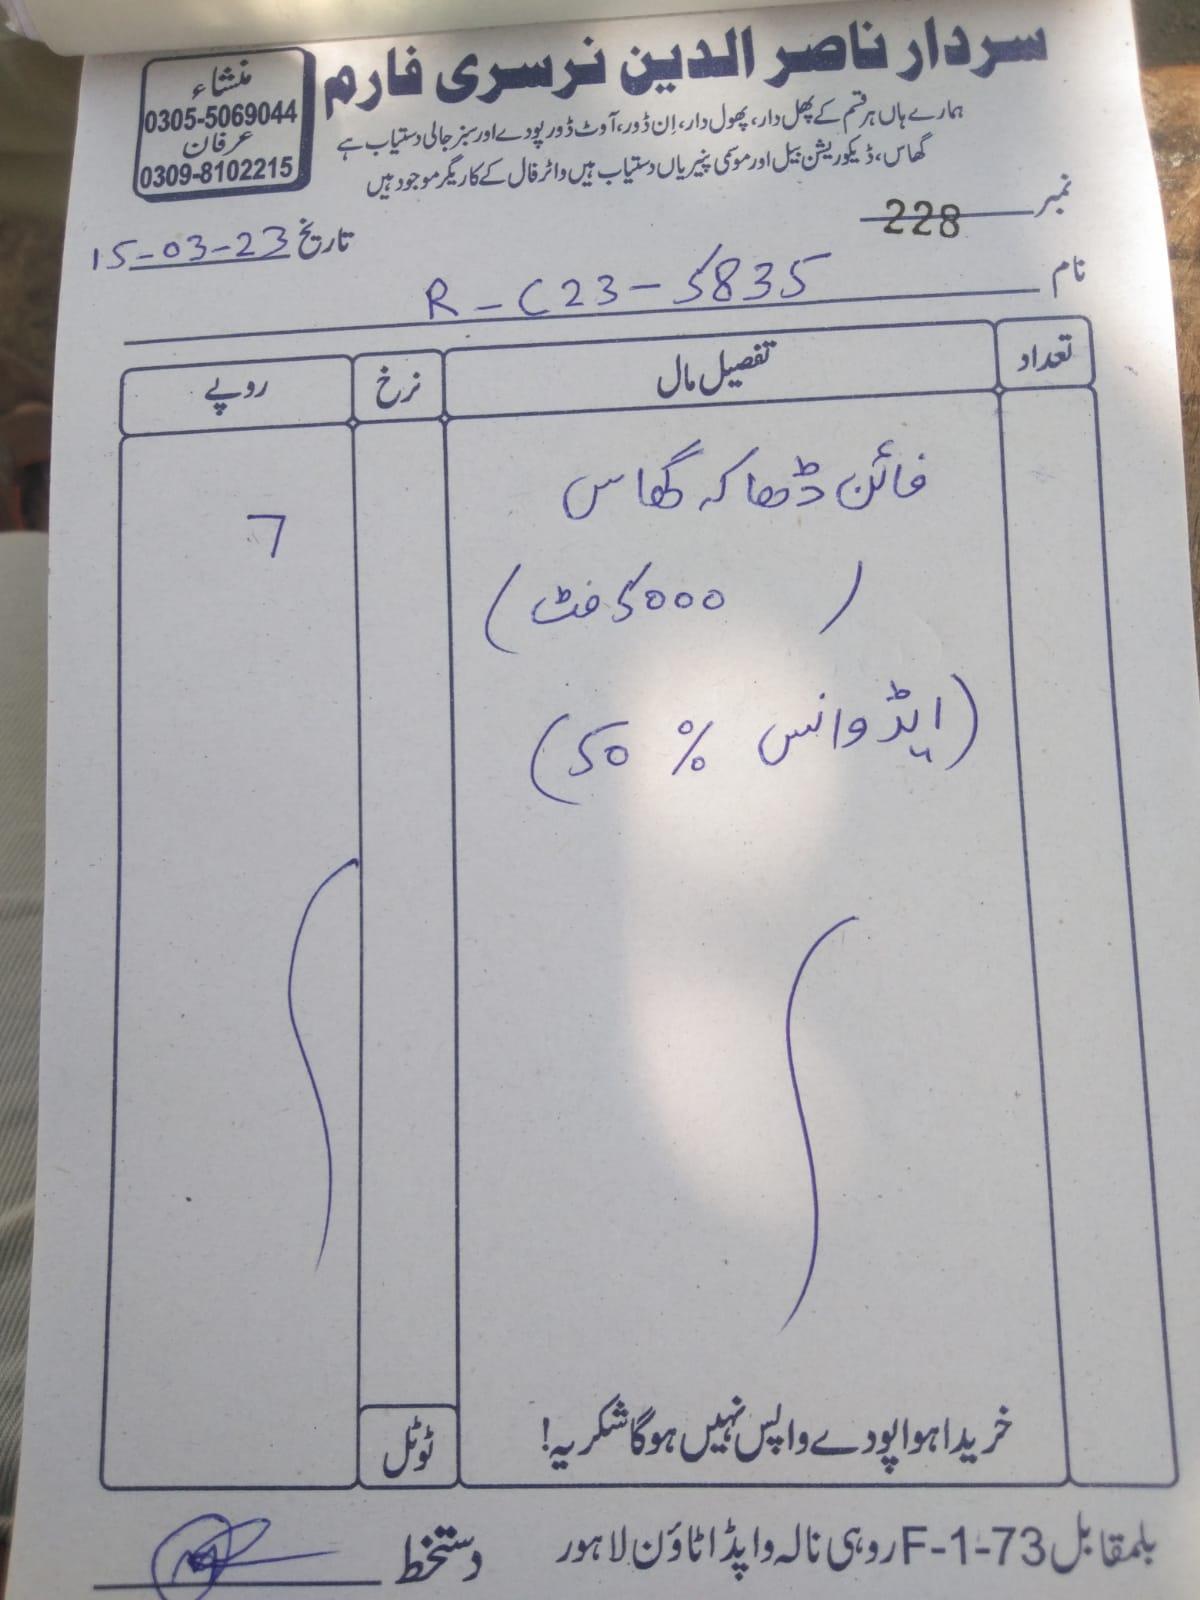 سردار ناصر الدین نرسری فارم
منشاء
0305-5069044
عرفان
0309-8102215
ہمارے ہاں ہر قسم کے پھل دار، پھول دار، ان ڈور، آوٹ ڈور پودے اور سبز جالی دستیاب ہے
گھاس، ڈیکوریشن بیل اور موسمی پنیریاں دستیاب ہیں واٹر فال کے کاریگر موجود ہیں
نمبر 228
تاریخ 15-03-23
نام R-C23-5835
تعداد تفصیل مال نرخ روپے
فائن ڈھاکہ گھاس 7
(5000 فٹ)
(ایڈوانس % 50)
خریدا ہوا پودے واپس نہیں ہوگا شکریہ! ٹوٹل
دستخط
بلمقابل F-1-73 روہی نالہ واپڈا ٹاؤن لاہور